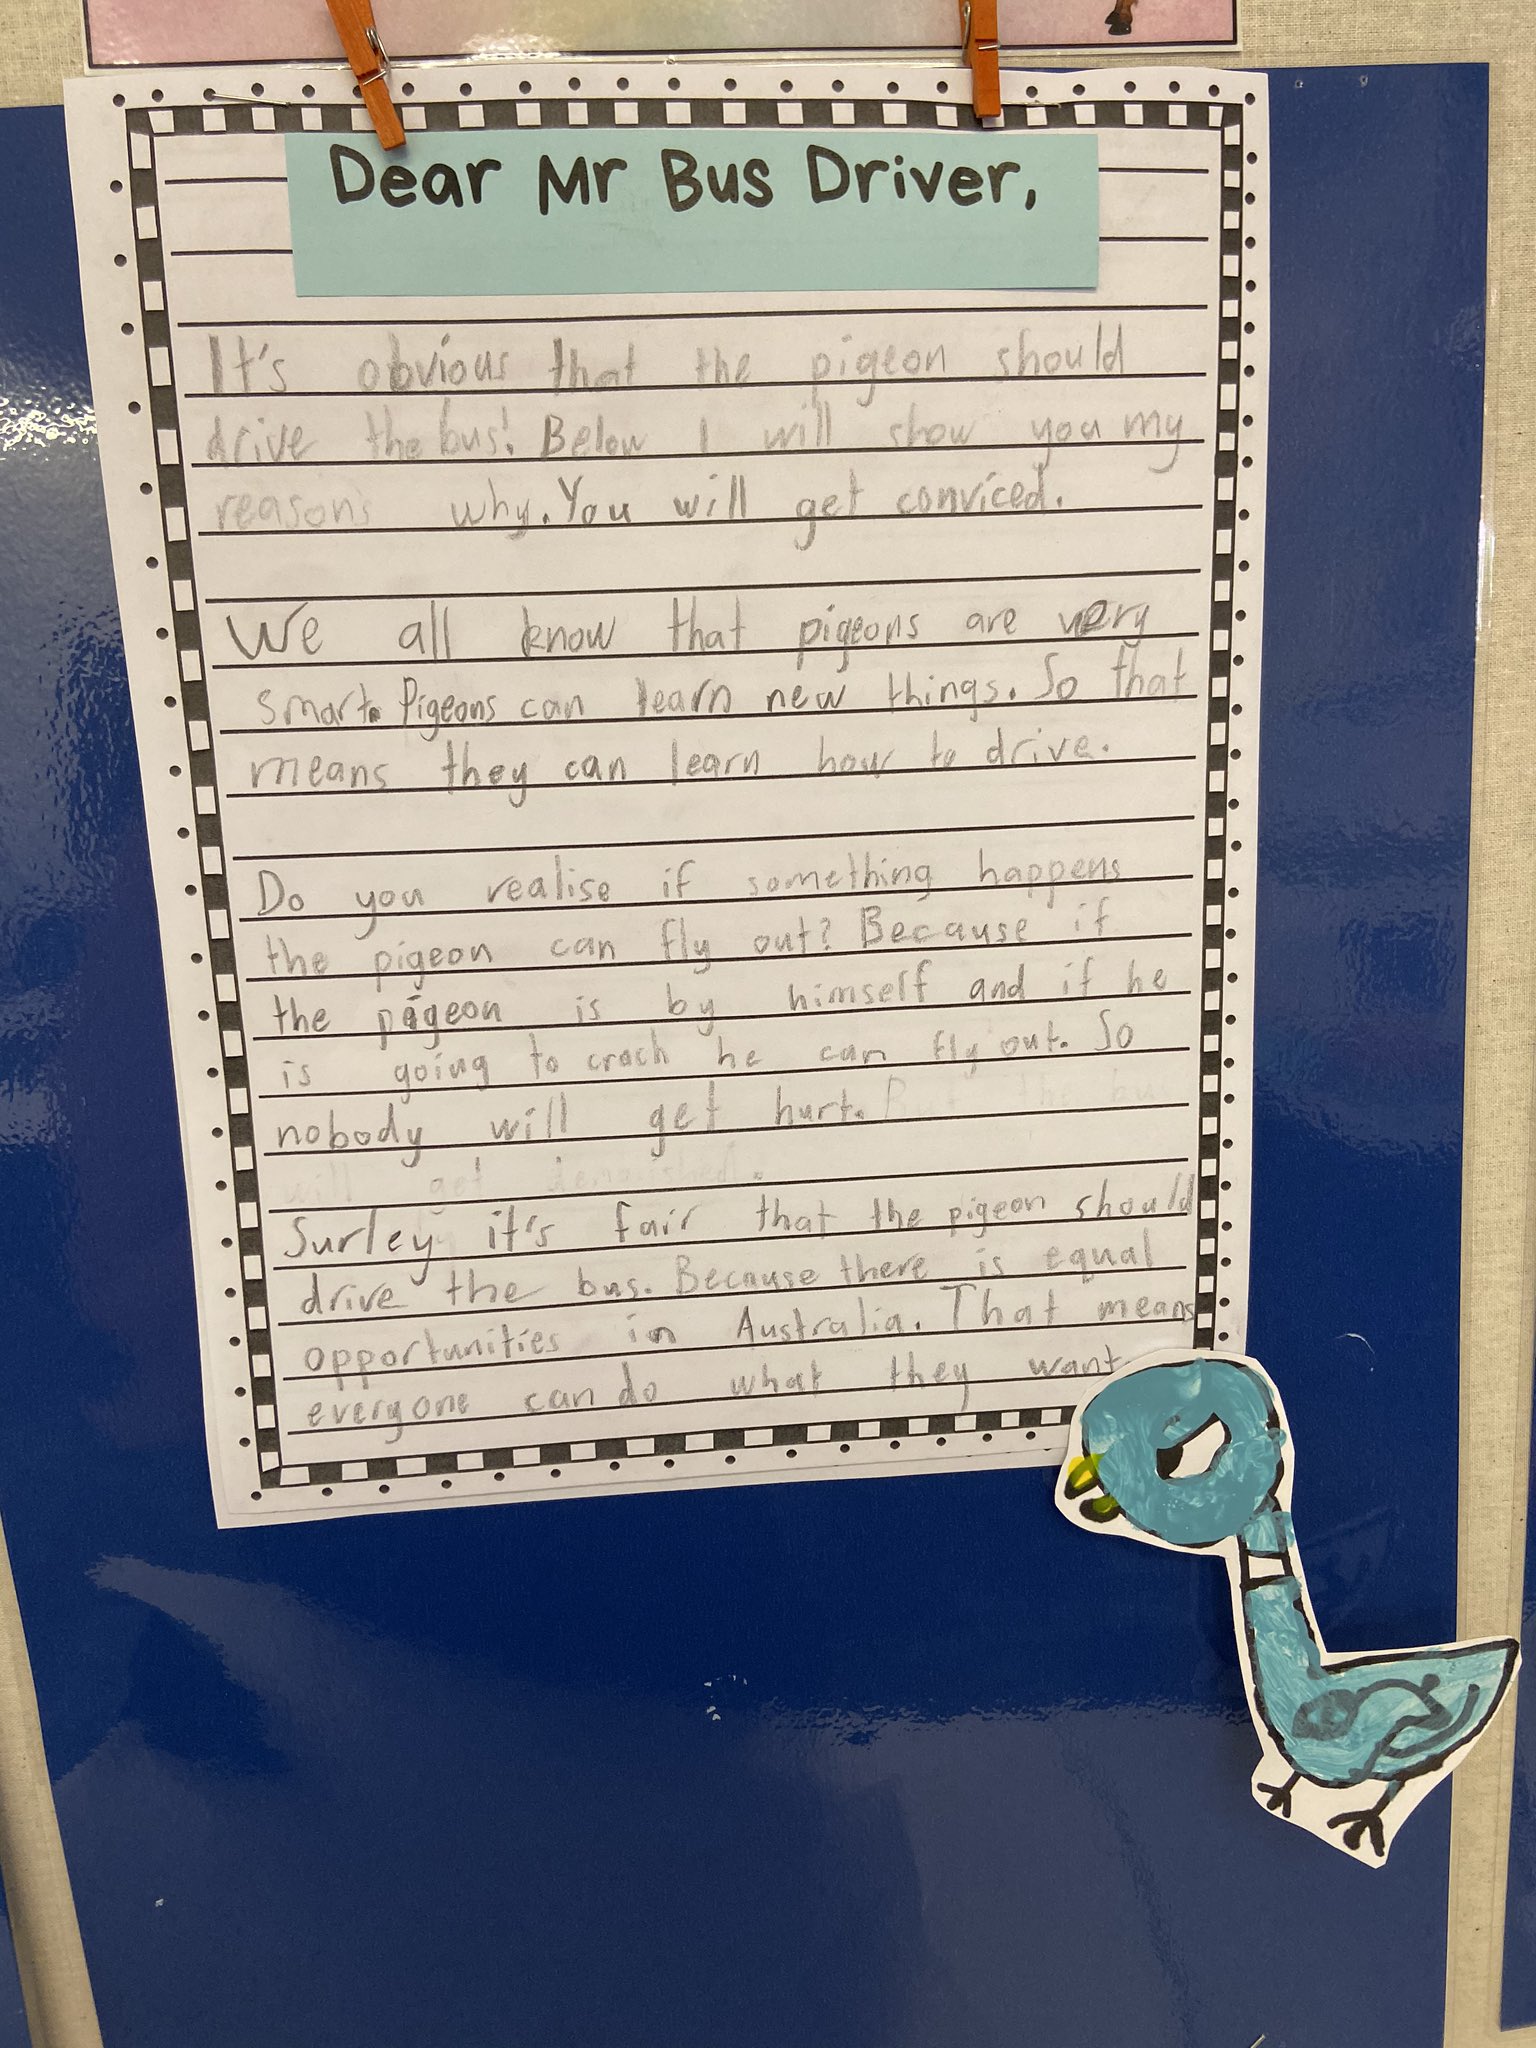 Dear Mr Bus Driver,
It's obvious that the pigeon should
drive the bus! Below I will show you my
reasons why. You will get conviced.
We all know that pigeons are very
smart. Pigeons can learn new things. So that
means they can learn how to drive.
Do you realise if something happens
the pigeon can fly out? Because if
the pigeon is by himself and if he
is going to crach he can fly out. So
nobody will get hurt. But the bus
will get demolished.
Surley it's fair that the pigeon should
drive the bus. Because there is equal
opportunities in Australia. That means
everyone can do what they want